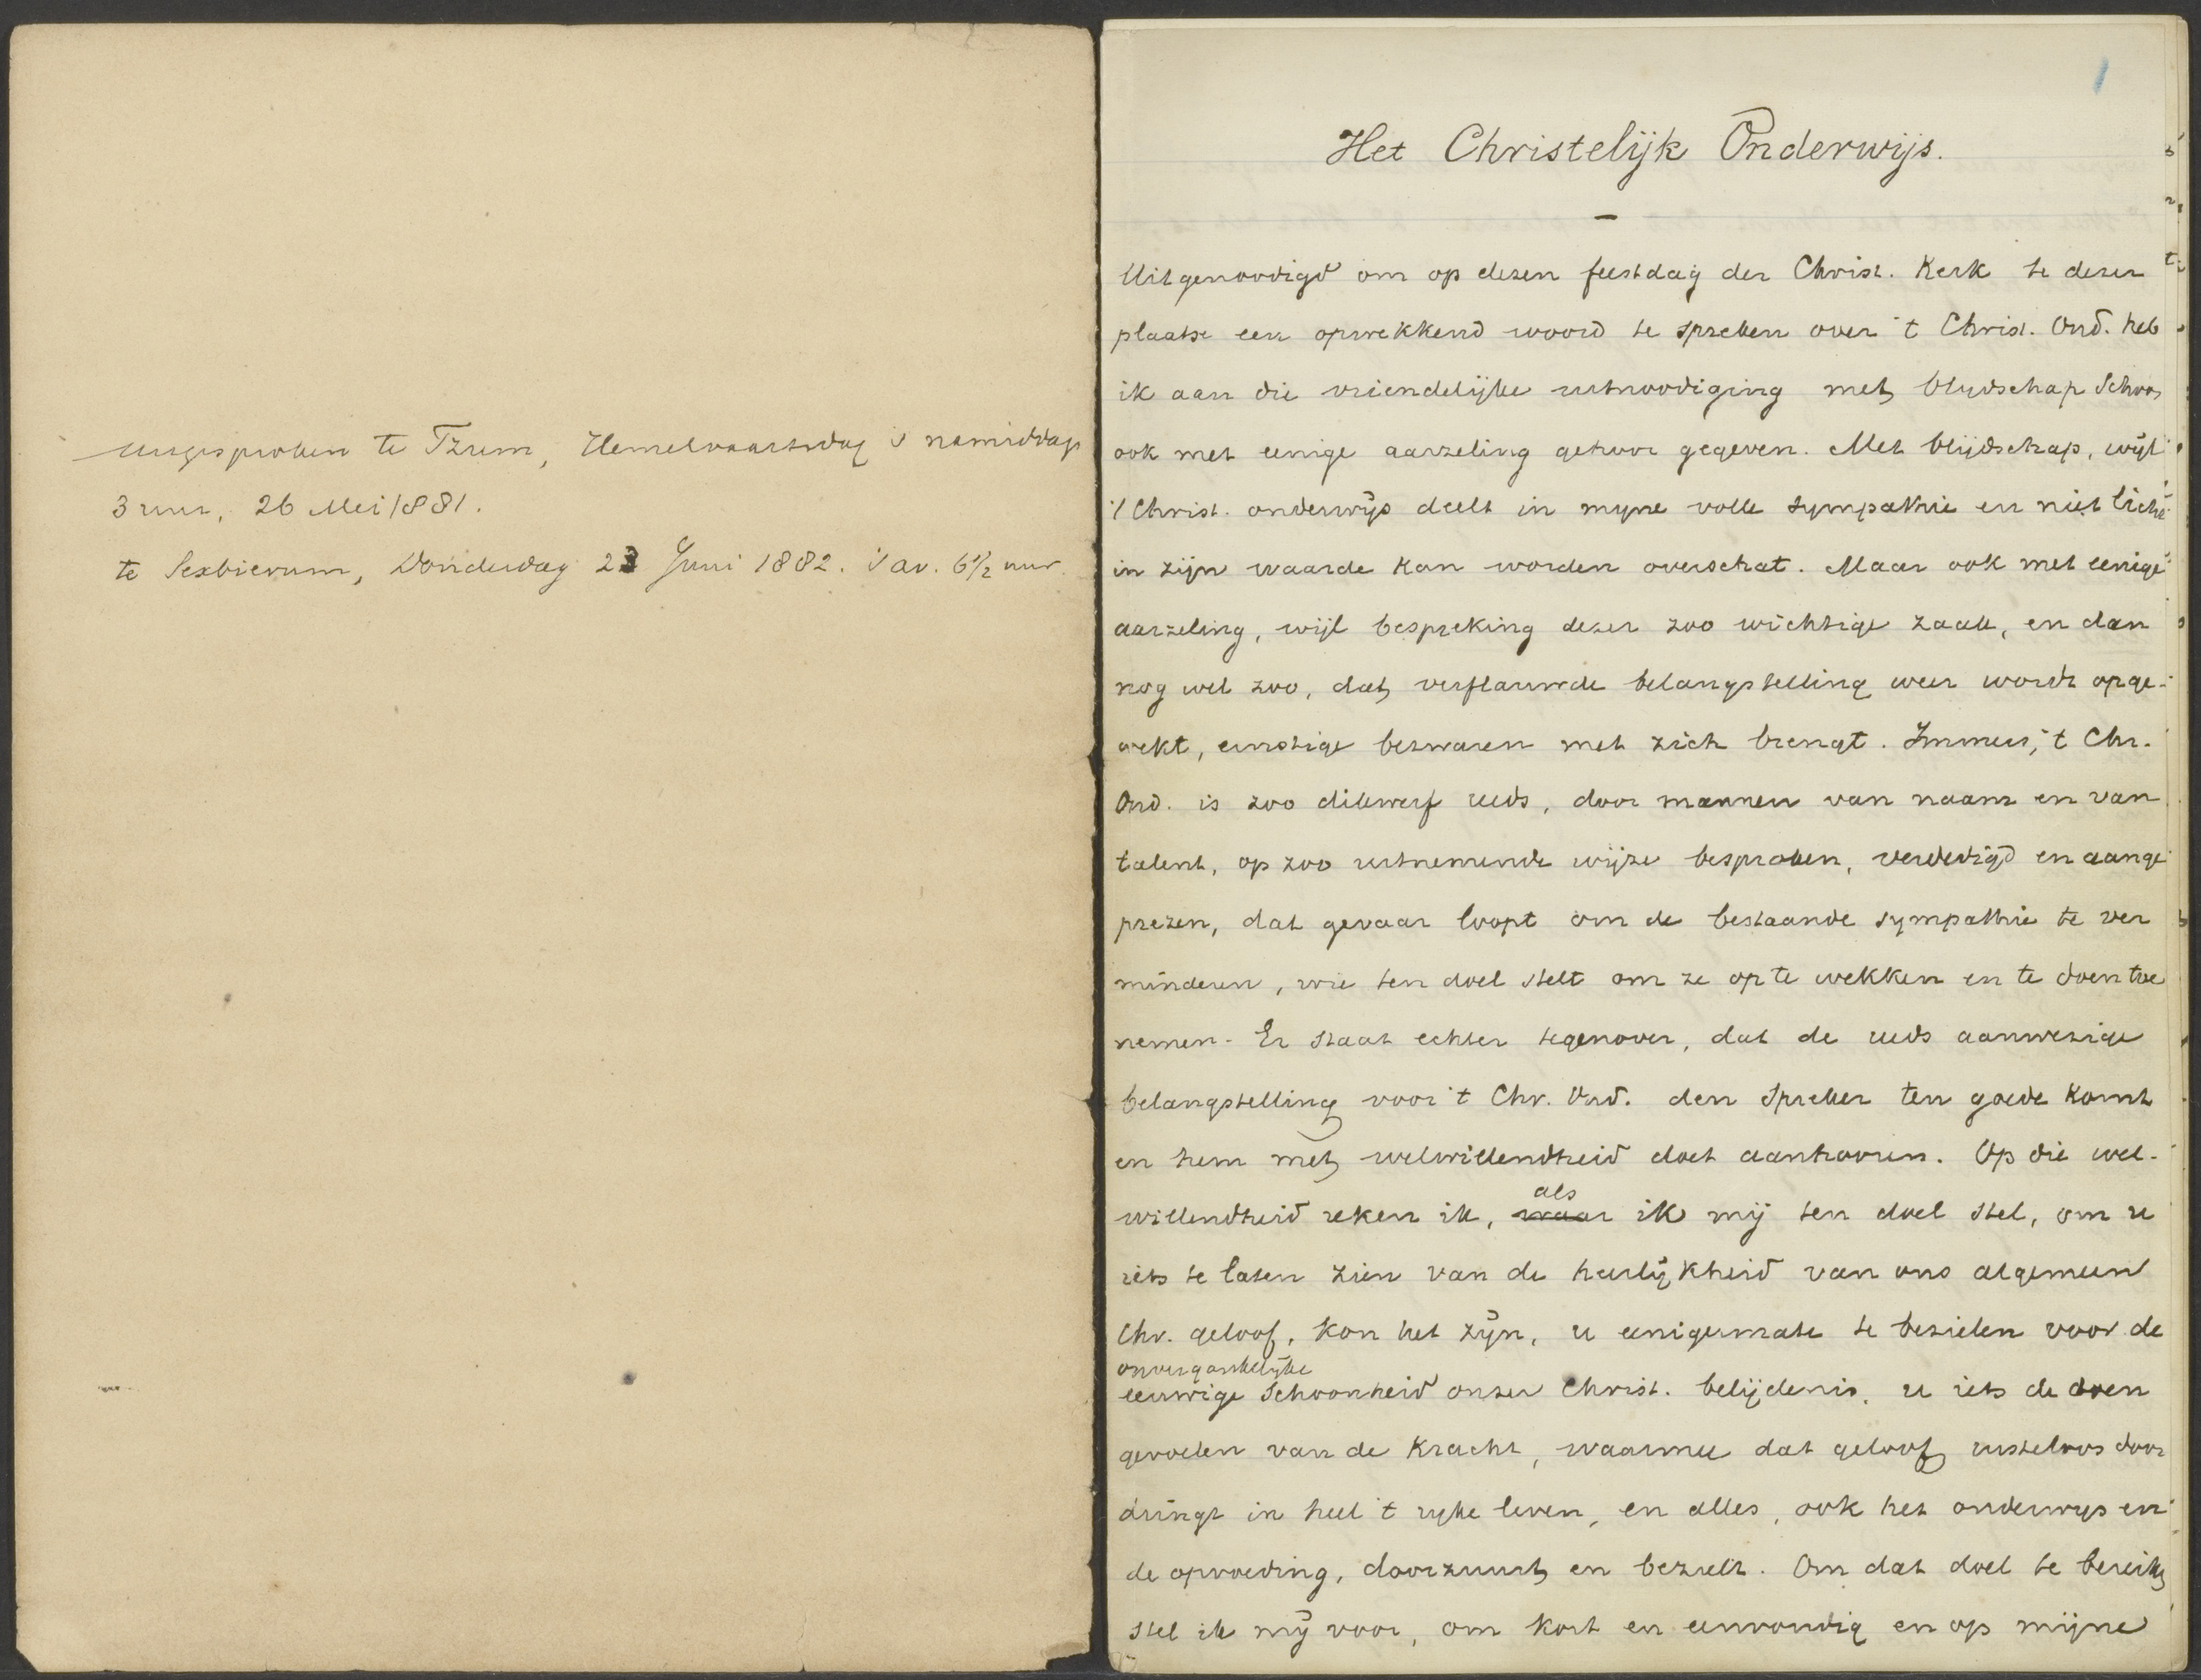 uitgesproken te Tzum, Hemelvaartsdag 's namiddags
3 uur, 26 Mei 1881.
te Sexbierum, Donderdag 23 Juni 1882. 's av. 6 1/2 uur.
1
Het Christelijk Onderwijs.
—
Uitgenoodigd om op dezen feestdag der Christ. Kerk te dezer
plaatse een opwekkend woord te spreken over 't Christ. Ond. heb
ik aan die vriendelijke uitnoodiging met blijdschap schoon
ook met eenige aarzeling gehoor gegeven. Met blijdschap, wijl
't Christ. onderwijs deelt in mijne volle sympathie en niet licht
in zijn waarde kan worden overschat. Maar ook met eenige
aarzeling, wijl bespreking dezer zoo wichtige zaak, en dan
nog wel zoo, dat verflauwde belangstelling weer wordt opge-
wekt, ernstige bezwaren met zich brengt. Immers, 't Chr.
Ond. is zoo dikwerf reeds, door mannen van naam en van
talent, op zoo uitnemende wijze besproken, verdedigd en aange
prezen, dat gevaar loopt om de bestaande sympathie te ver
minderen, wie ten doel stelt om ze op te wekken en te doen toe
nemen. Er staat echter tegenover, dat de reeds aanwezige
belangstelling voor 't Chr. Ond. den spreker ten goede komt
en hem met welwillendheid doet aanhooren. Op die wel-
willendheid reken ik, waar als ik mij ten doel stel, om u
iets te laten zien van de heerlijkheid van ons algemeen
Chr. geloof, kon het zijn, u eenigermate te bezielen voor de
onvergankelijke
eeuwige schoonheid onzer Christ. belijdenis, u iets de doen
gevoelen van de kracht, waarmee dat geloof rusteloos door
dringt in heel 't rijke leven, en alles, ook het onderwijs en
de opvoeding, doorzuurt en bezielt. Om dat doel te bereiken
stel ik mij voor, om kort en eenvoudig en op mijne